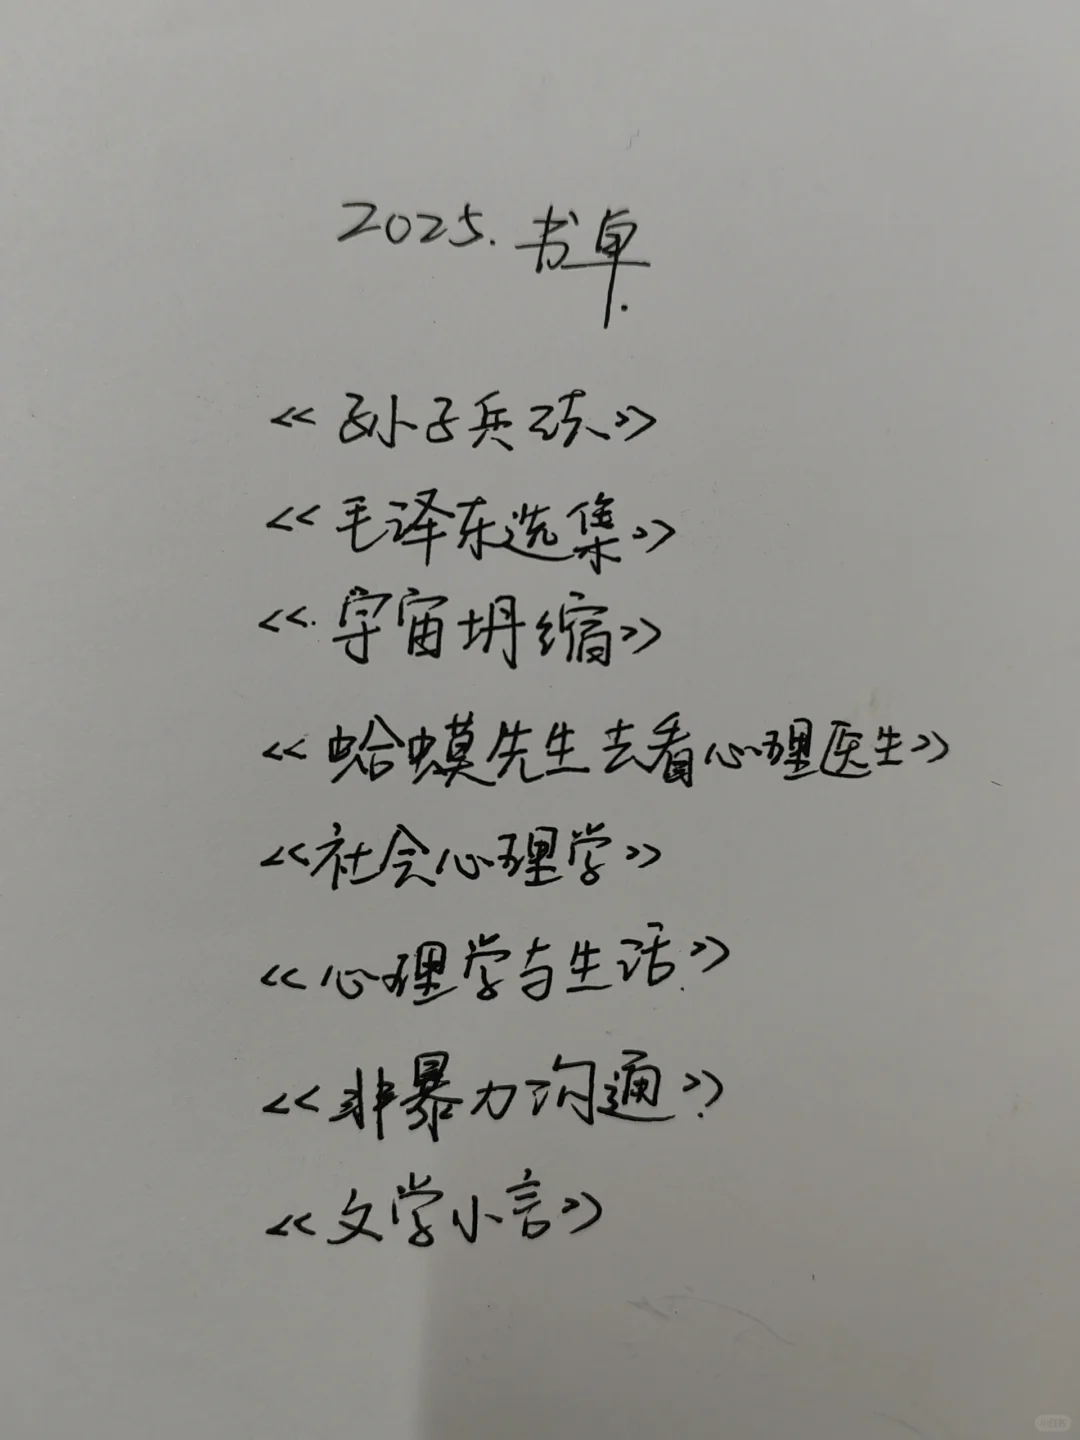 2025.书单
<<孙子兵法>>
<<毛泽东选集>>
<<宇宙坍缩>>
<<蛤蟆先生去看心理医生>>
<<社会心理学>>
<<心理学与生活>>
<<非暴力沟通>>
<<文学小言>>
小红书